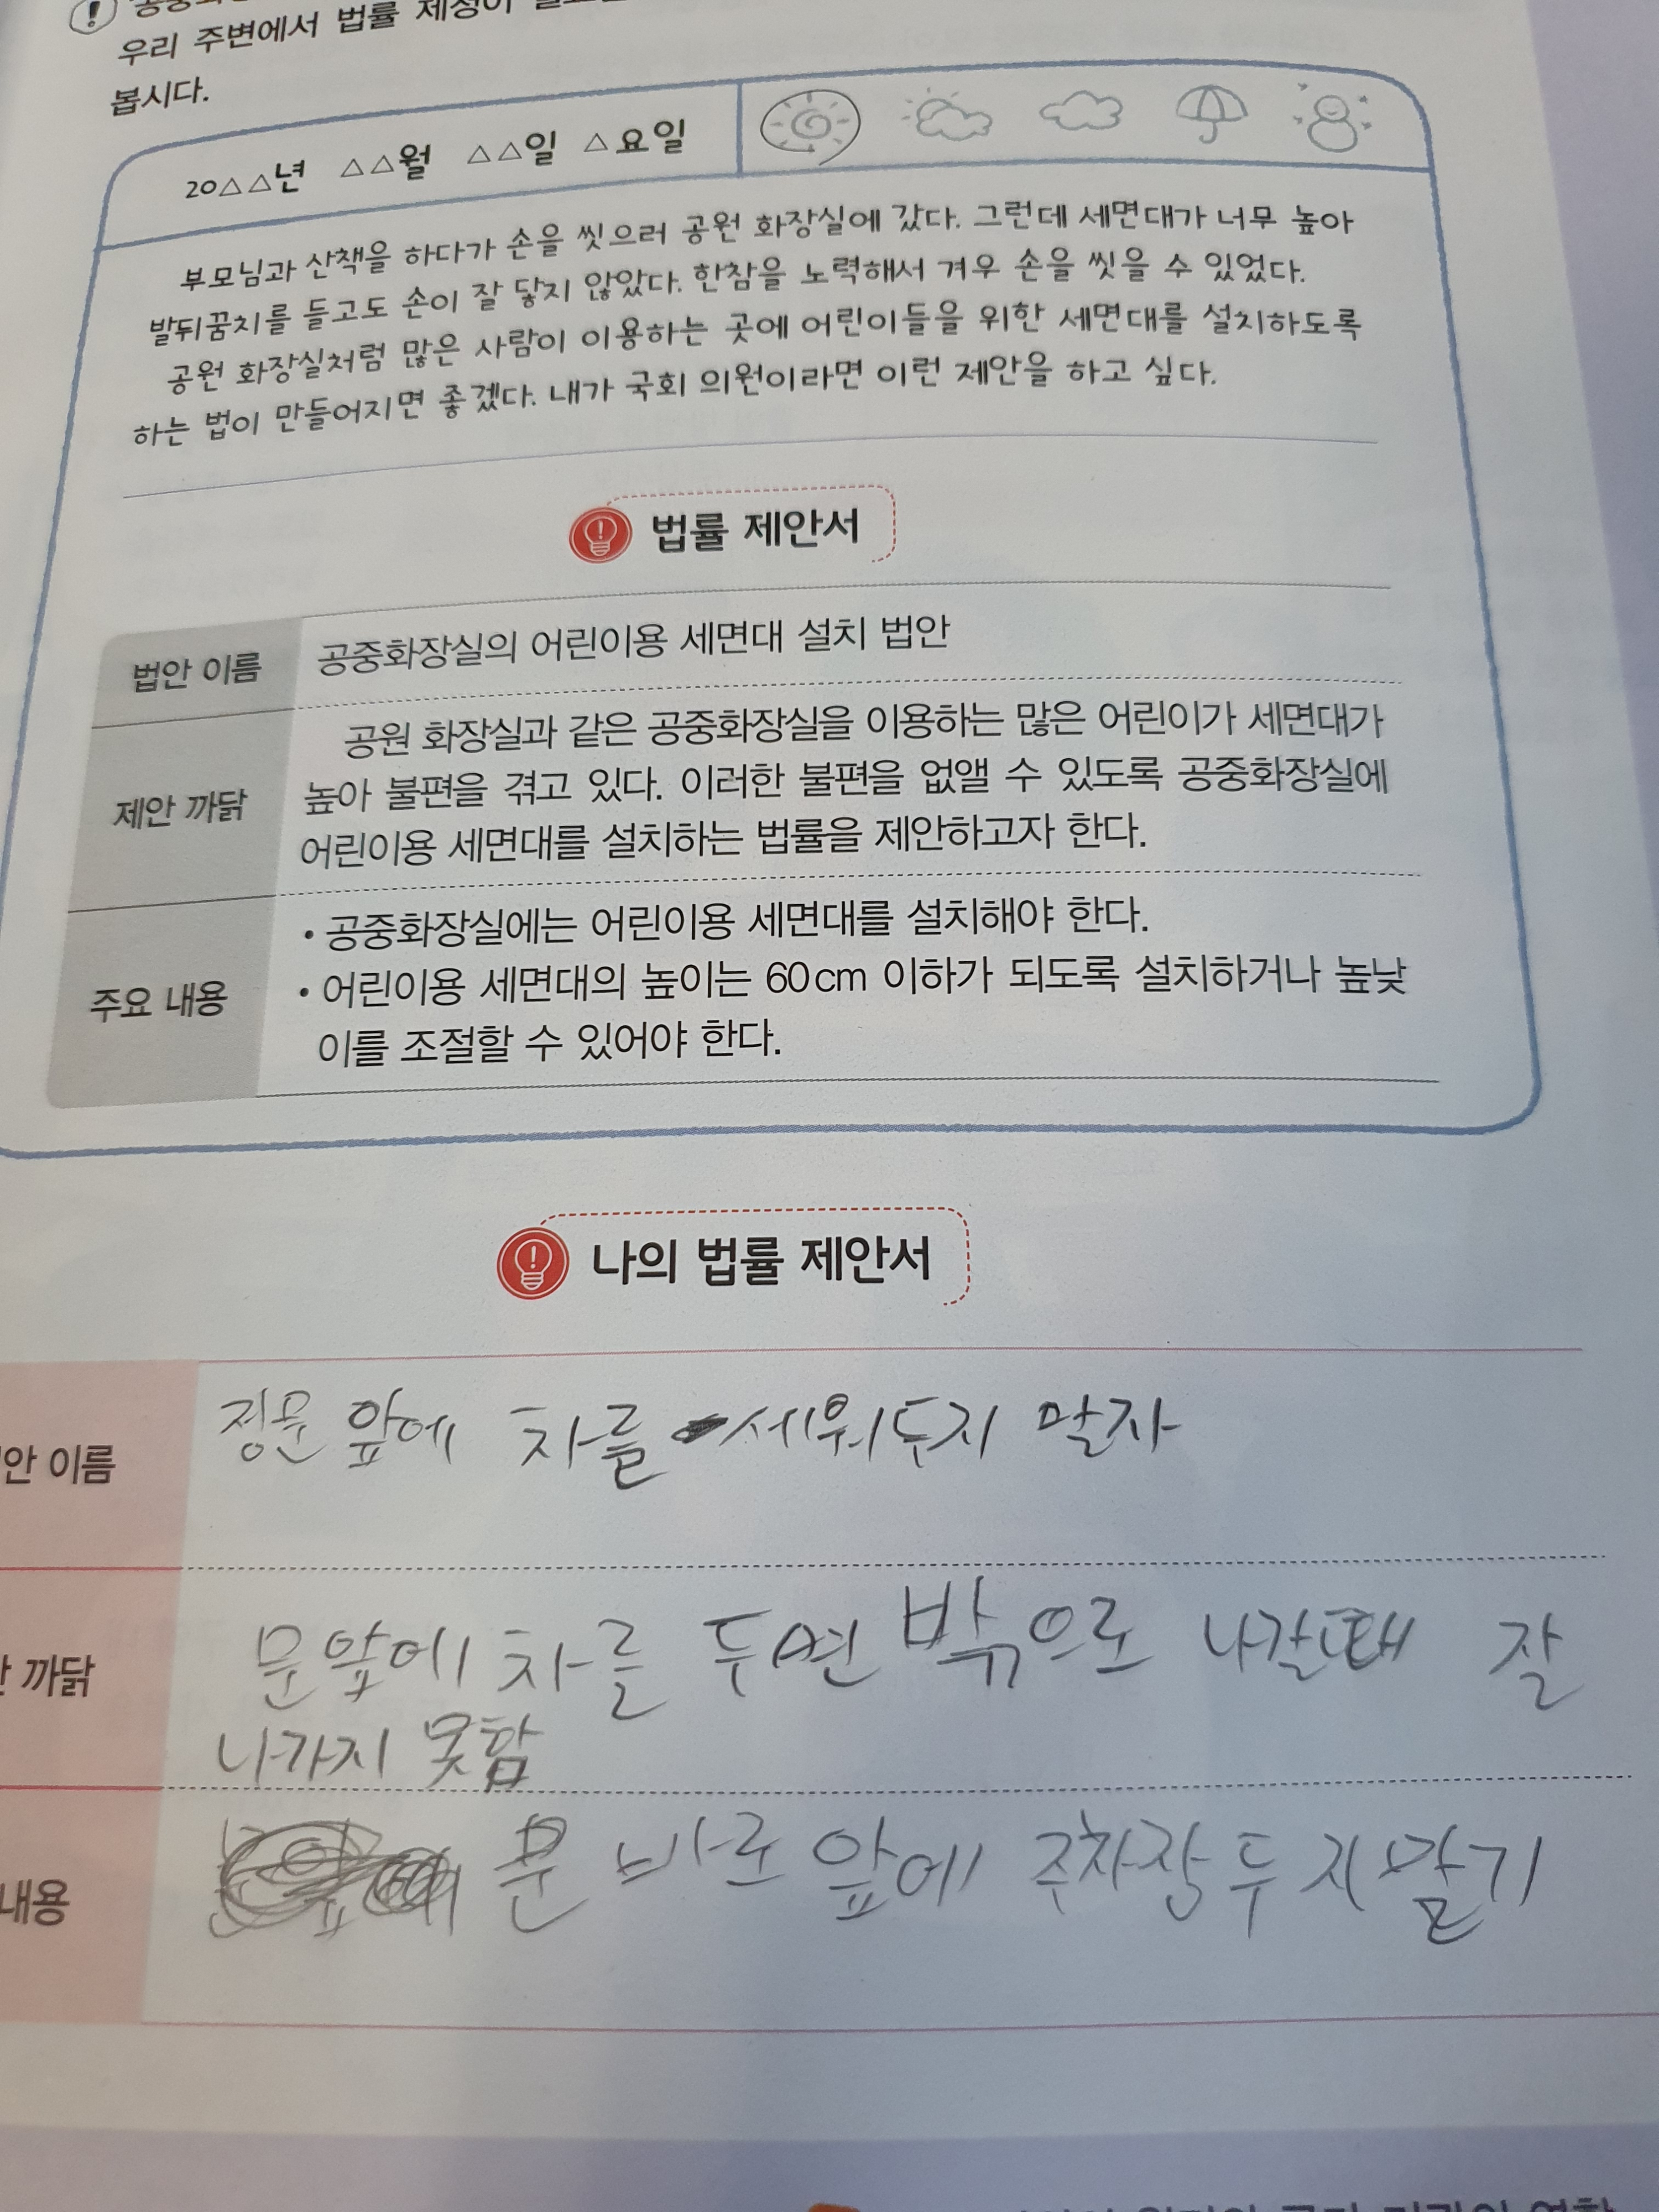 우리 주변에서 법률 제정이
봅시다.
20△△년 △△월 △△일 △요일
부모님과 산책을 하다가 손을 씻으러 공원 화장실에 갔다. 그런데 세면대가 너무 높아
발뒤꿈치를 들고도 손이 잘 닿지 않았다. 한참을 노력해서 겨우 손을 씻을 수 있었다.
공원 화장실처럼 많은 사람이 이용하는 곳에 어린이들을 위한 세면대를 설치하도록
하는 법이 만들어지면 좋겠다. 내가 국회 의원이라면 이런 제안을 하고 싶다.
법률 제안서
법안 이름
공중화장실의 어린이용 세면대 설치 법안
제안 까닭
공원 화장실과 같은 공중화장실을 이용하는 많은 어린이가 세면대가
높아 불편을 겪고 있다. 이러한 불편을 없앨 수 있도록 공중화장실에
어린이용 세면대를 설치하는 법률을 제안하고자 한다.
주요 내용
• 공중화장실에는 어린이용 세면대를 설치해야 한다.
• 어린이용 세면대의 높이는 60cm 이하가 되도록 설치하거나 높낮
이를 조절할 수 있어야 한다.
나의 법률 제안서
안 이름
정문 앞에 차를 세워두지 말자
까닭
문앞에 차를 두면 밖으로 나갈때 잘
나가지 못함
내용
문 바로 앞에 주차장 두지 말기